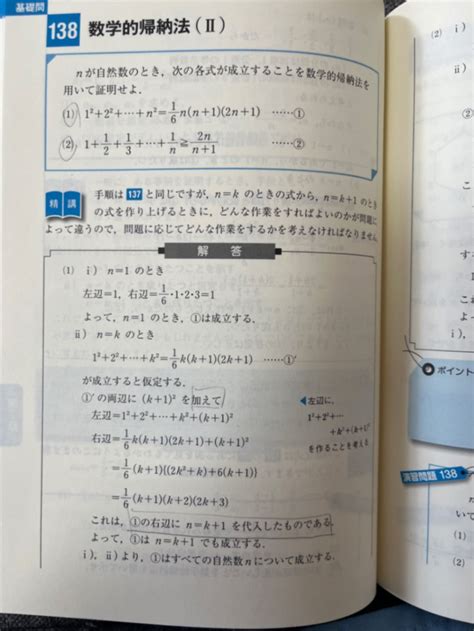 基礎問
138 数学的帰納法(Ⅱ)
nが自然数のとき，次の各式が成立することを数学的帰納法を
用いて証明せよ．
(1) 1²+2²+…+n²=1/6 n(n+1)(2n+1) ……①
(2) 1+1/2+1/3+…+1/n≧2n/(n+1) ……②
精講
手順は137と同じですが，n=k のときの式から，n=k+1 のとき
の式を作り上げるときに，どんな作業をすればよいのかが問題に
よって違うので，問題に応じてどんな作業をするかを考えなければなりません
解答
(1) ⅰ) n=1 のとき
左辺=1，右辺=1/6・1・2・3=1
よって，n=1 のとき，①は成立する．
ⅱ) n=k のとき
1²+2²+…+k²=1/6 k(k+1)(2k+1) ……①′
が成立すると仮定する．
①′の両辺に (k+1)² を加えて
左辺=1²+2²+…+k²+(k+1)²
右辺=1/6 k(k+1)(2k+1)+(k+1)²
=1/6 (k+1){(2k²+k)+6(k+1)}
=1/6 (k+1)(k+2)(2k+3)
これは，①の右辺に n=k+1 を代入したものである．
よって，①は n=k+1 でも成立する．
ⅰ)，ⅱ)より，①はすべての自然数nについて成立する．
◀左辺に，
1²+2²+…
+k²+(k+1)²
を作ることを考える
(2) ⅰ)
ⅱ)
ポイント
演習問題 138
(1)
(2)